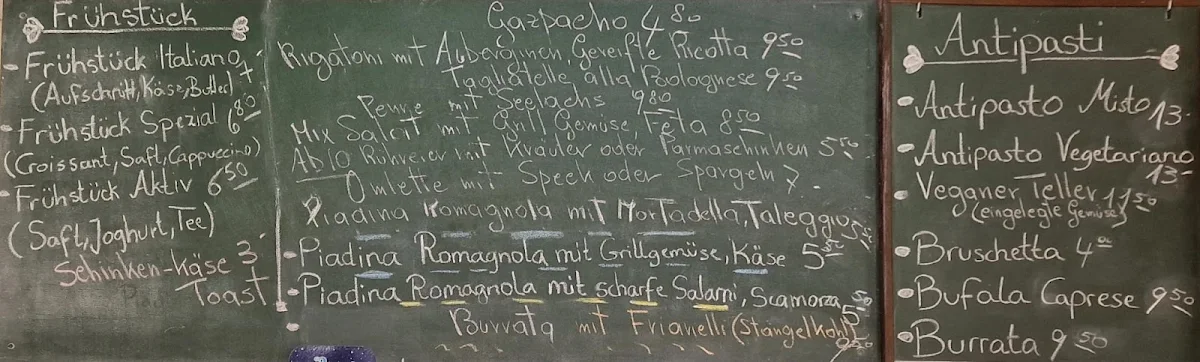 Frühstück
- Frühstück Italiano 7.-
(Aufschnitt, Käse, Butter)
• Frühstück Spezial 6 80
(Croissant, Saft, Cappuccino)
• Frühstück Aktiv 6 50
(Saft, Joghurt, Tee)
Schinken-Käse 3.-
Toast
Gazpacho 4 80
Rigatoni mit Auberginen, Gereifte Ricotta 9 50
Tagliatelle alla Bolognese 9 50
Penne mit Seelachs 9 80
Mix Salat mit Grill Gemüse, Feta 8 50
Ab 10 Rühreier mit Kräuter oder Parmaschinken 5 50
Omlette mit Speck oder Spargeln 7.-
Piadina Romagnola mit Mortadella, Taleggio 5 50
• Piadina Romagnola mit Grillgemüse, Käse 5 50
• Piadina Romagnola mit scharfe Salami, Scamorza 5 50
• Burrata mit Friarielli (Stangelkohl)
9 50
Antipasti
• Antipasto Misto 13.-
• Antipasto Vegetariano
13.-
• Veganer Teller 11 50
(eingelegte Gemüse)
• Bruschetta 4
• Bufala Caprese 9 50
• Burrata 9 50